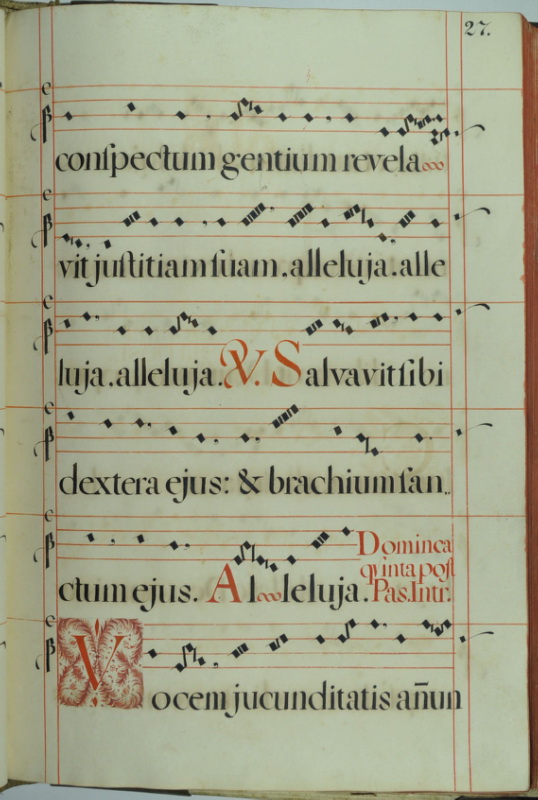 27.
conſpectum gentium revela
vit juſtitiam ſuam. alleluja. alle
luja. alleluja. V. Salvavit ſibi
dextera ejus: & brachium ſan..
ctum ejus. Alleluja.
Dominca
quinta poſt
Pas. Intr.
Vocem jucunditatis añun